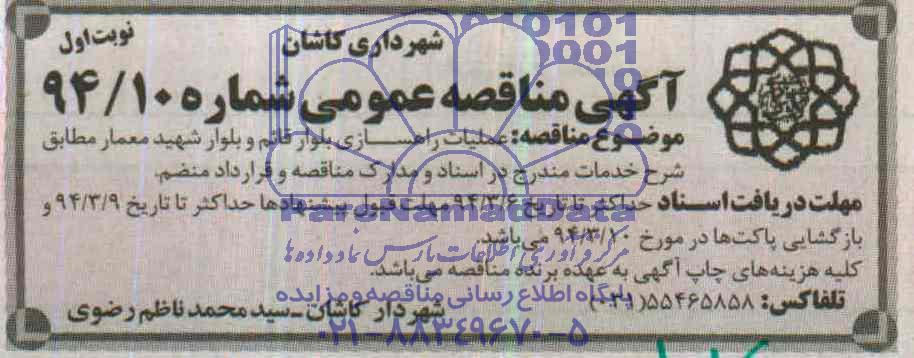 نوبت اول
شهرداری کاشان
آگهی مناقصه عمومی شماره ۹۴/۱۰
موضوع مناقصه: عملیات راهسازی بلوار قائم و بلوار شهید معمار مطابق
شرح خدمات مندرج در اسناد و مدارک مناقصه و قرارداد منضم.
مهلت دریافت اسناد حداکثر تا تاریخ ۹۴/۳/۶ مهلت قبول پیشنهادها حداکثر تا تاریخ ۹۴/۳/۹ و
بازگشایی پاکت‌ها در مورخ ۹۴/۳/۱۰ می‌باشد.
کلیه هزینه‌های چاپ آگهی به عهده برنده مناقصه می‌باشد.
تلفاکس: ۵۵۴۶۵۸۵۸ (۰۳۱)
شهردار کاشان - سید محمد ناظم رضوی
ParsNamadData
مرکز فرآوری اطلاعات پارس نماد داده ها
پایگاه اطلاع رسانی مناقصه و مزایده
۰۲۱-۸۸۳۴۹۶۷۰-۵